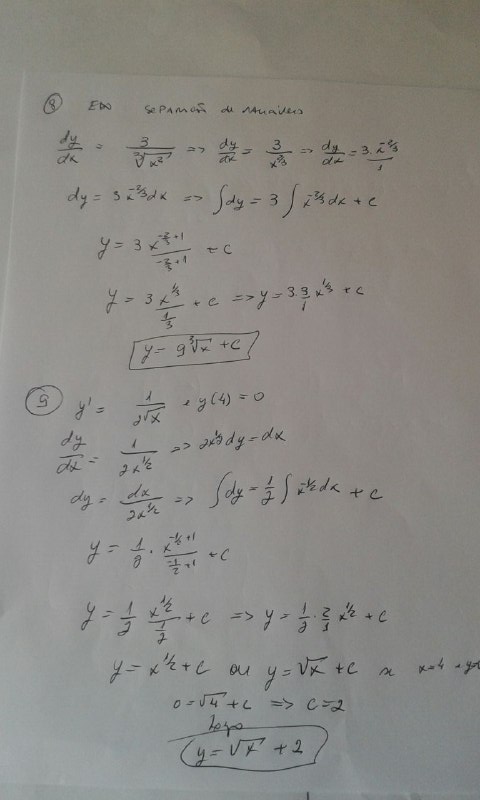 8 EDO separação de variáveis
dy/dx = 3/∛x² => dy/dx = 3/x^2/3 => dy/dx = 3.x^-2/3/1
dy = 3x^-2/3 dx => ∫dy = 3 ∫ x^-2/3 dx + C
y = 3 x^-2/3+1/-2/3+1 + C
y = 3 x^1/3/1/3 + C => y = 3.3/1 x^1/3 + C
y = 9∛x + C
9 y' = 1/2√x , y(4) = 0
dy/dx = 1/2x^1/2 => 2x^1/2 dy = dx
dy = dx/2x^1/2 => ∫dy = 1/2 ∫ x^-1/2 dx + C
y = 1/2 . x^-1/2+1/-1/2+1 + C
y = 1/2 x^1/2/1/2 + C => y = 1/2 . 2/1 x^1/2 + C
y = x^1/2 + C ou y = √x + C se x=4
0 = √4 + C => C = 2
Logo
y = √x + 2